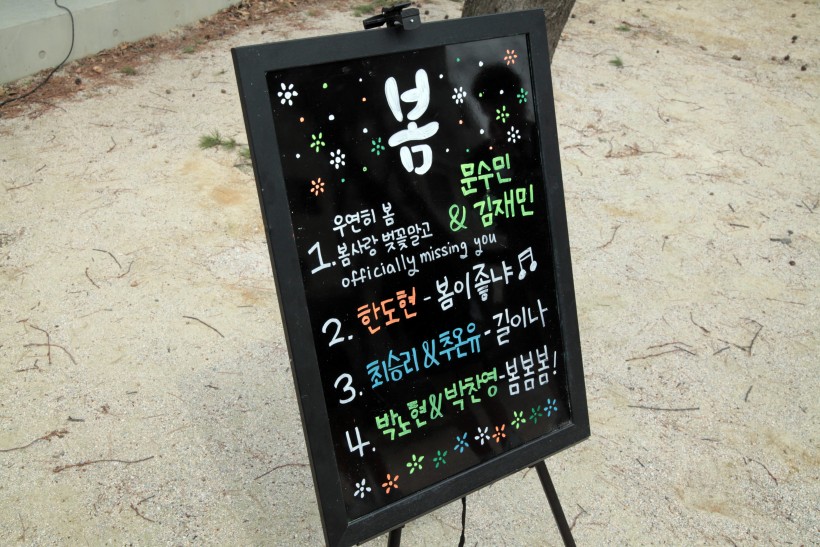 봄
문수민
& 김재민
1. 우연히 봄
봄사랑 벚꽃말고
officially missing you
2. 한도현 - 봄이좋냐♫
3. 최승리 & 추온유 - 길이나
4. 박노현 & 박찬영 - 봄봄봄!